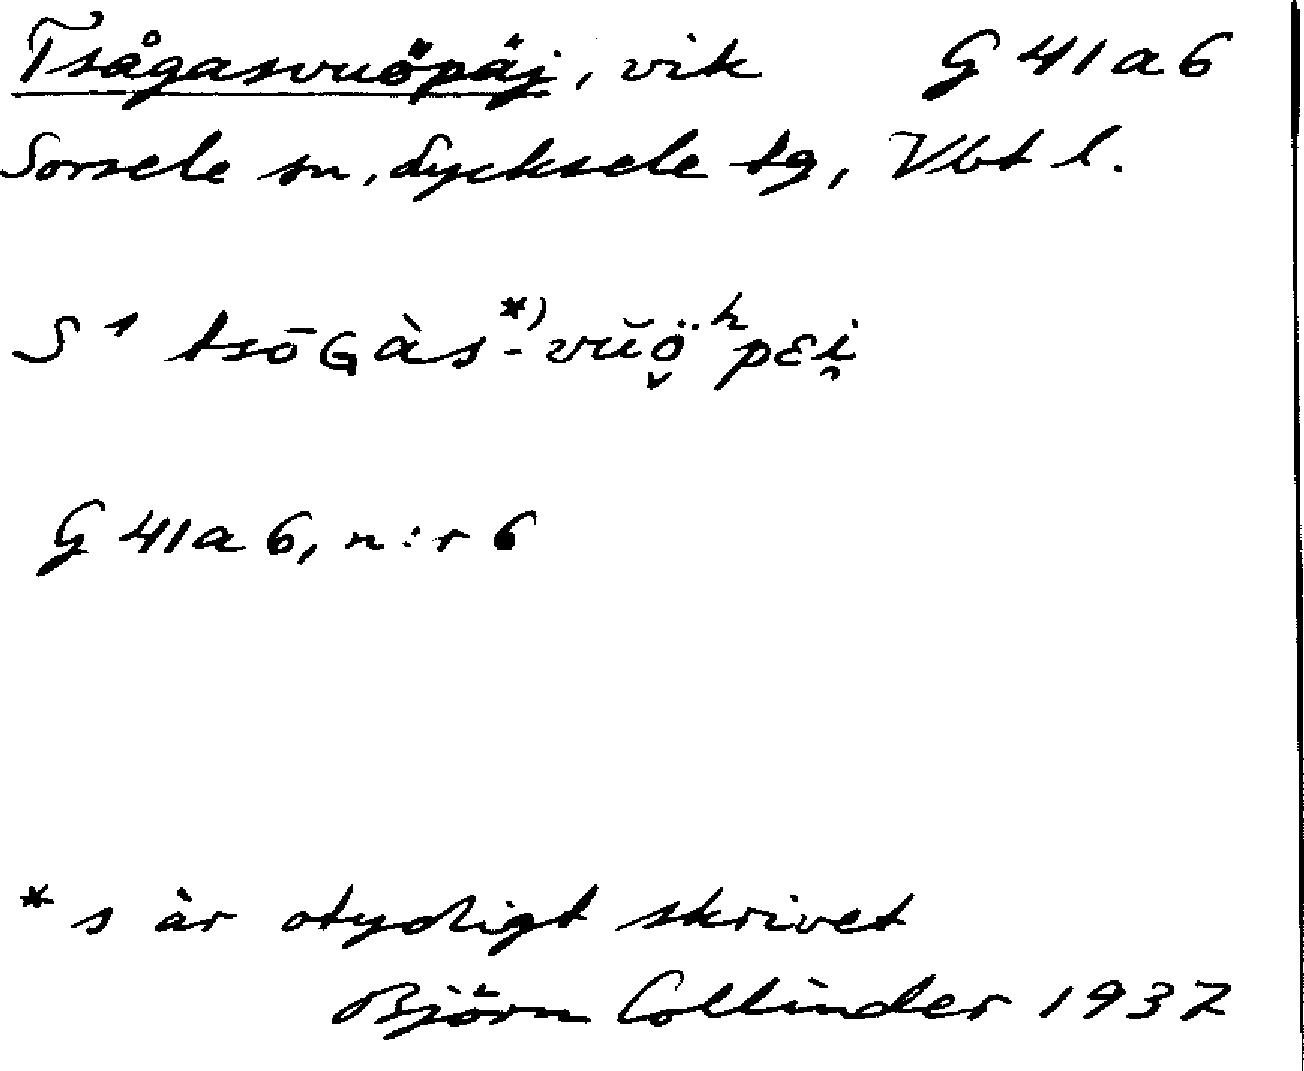 Tsågasvuöpäj, vik G 41 a 6
Sorsele sn, Lycksele tg, Vbt l.
S 1 tsōGàs*)-vŭö̬ʰpɛi̯
G 41 a 6, n:r 6
* s är otydligt skrivet
Björn Collinder 1937